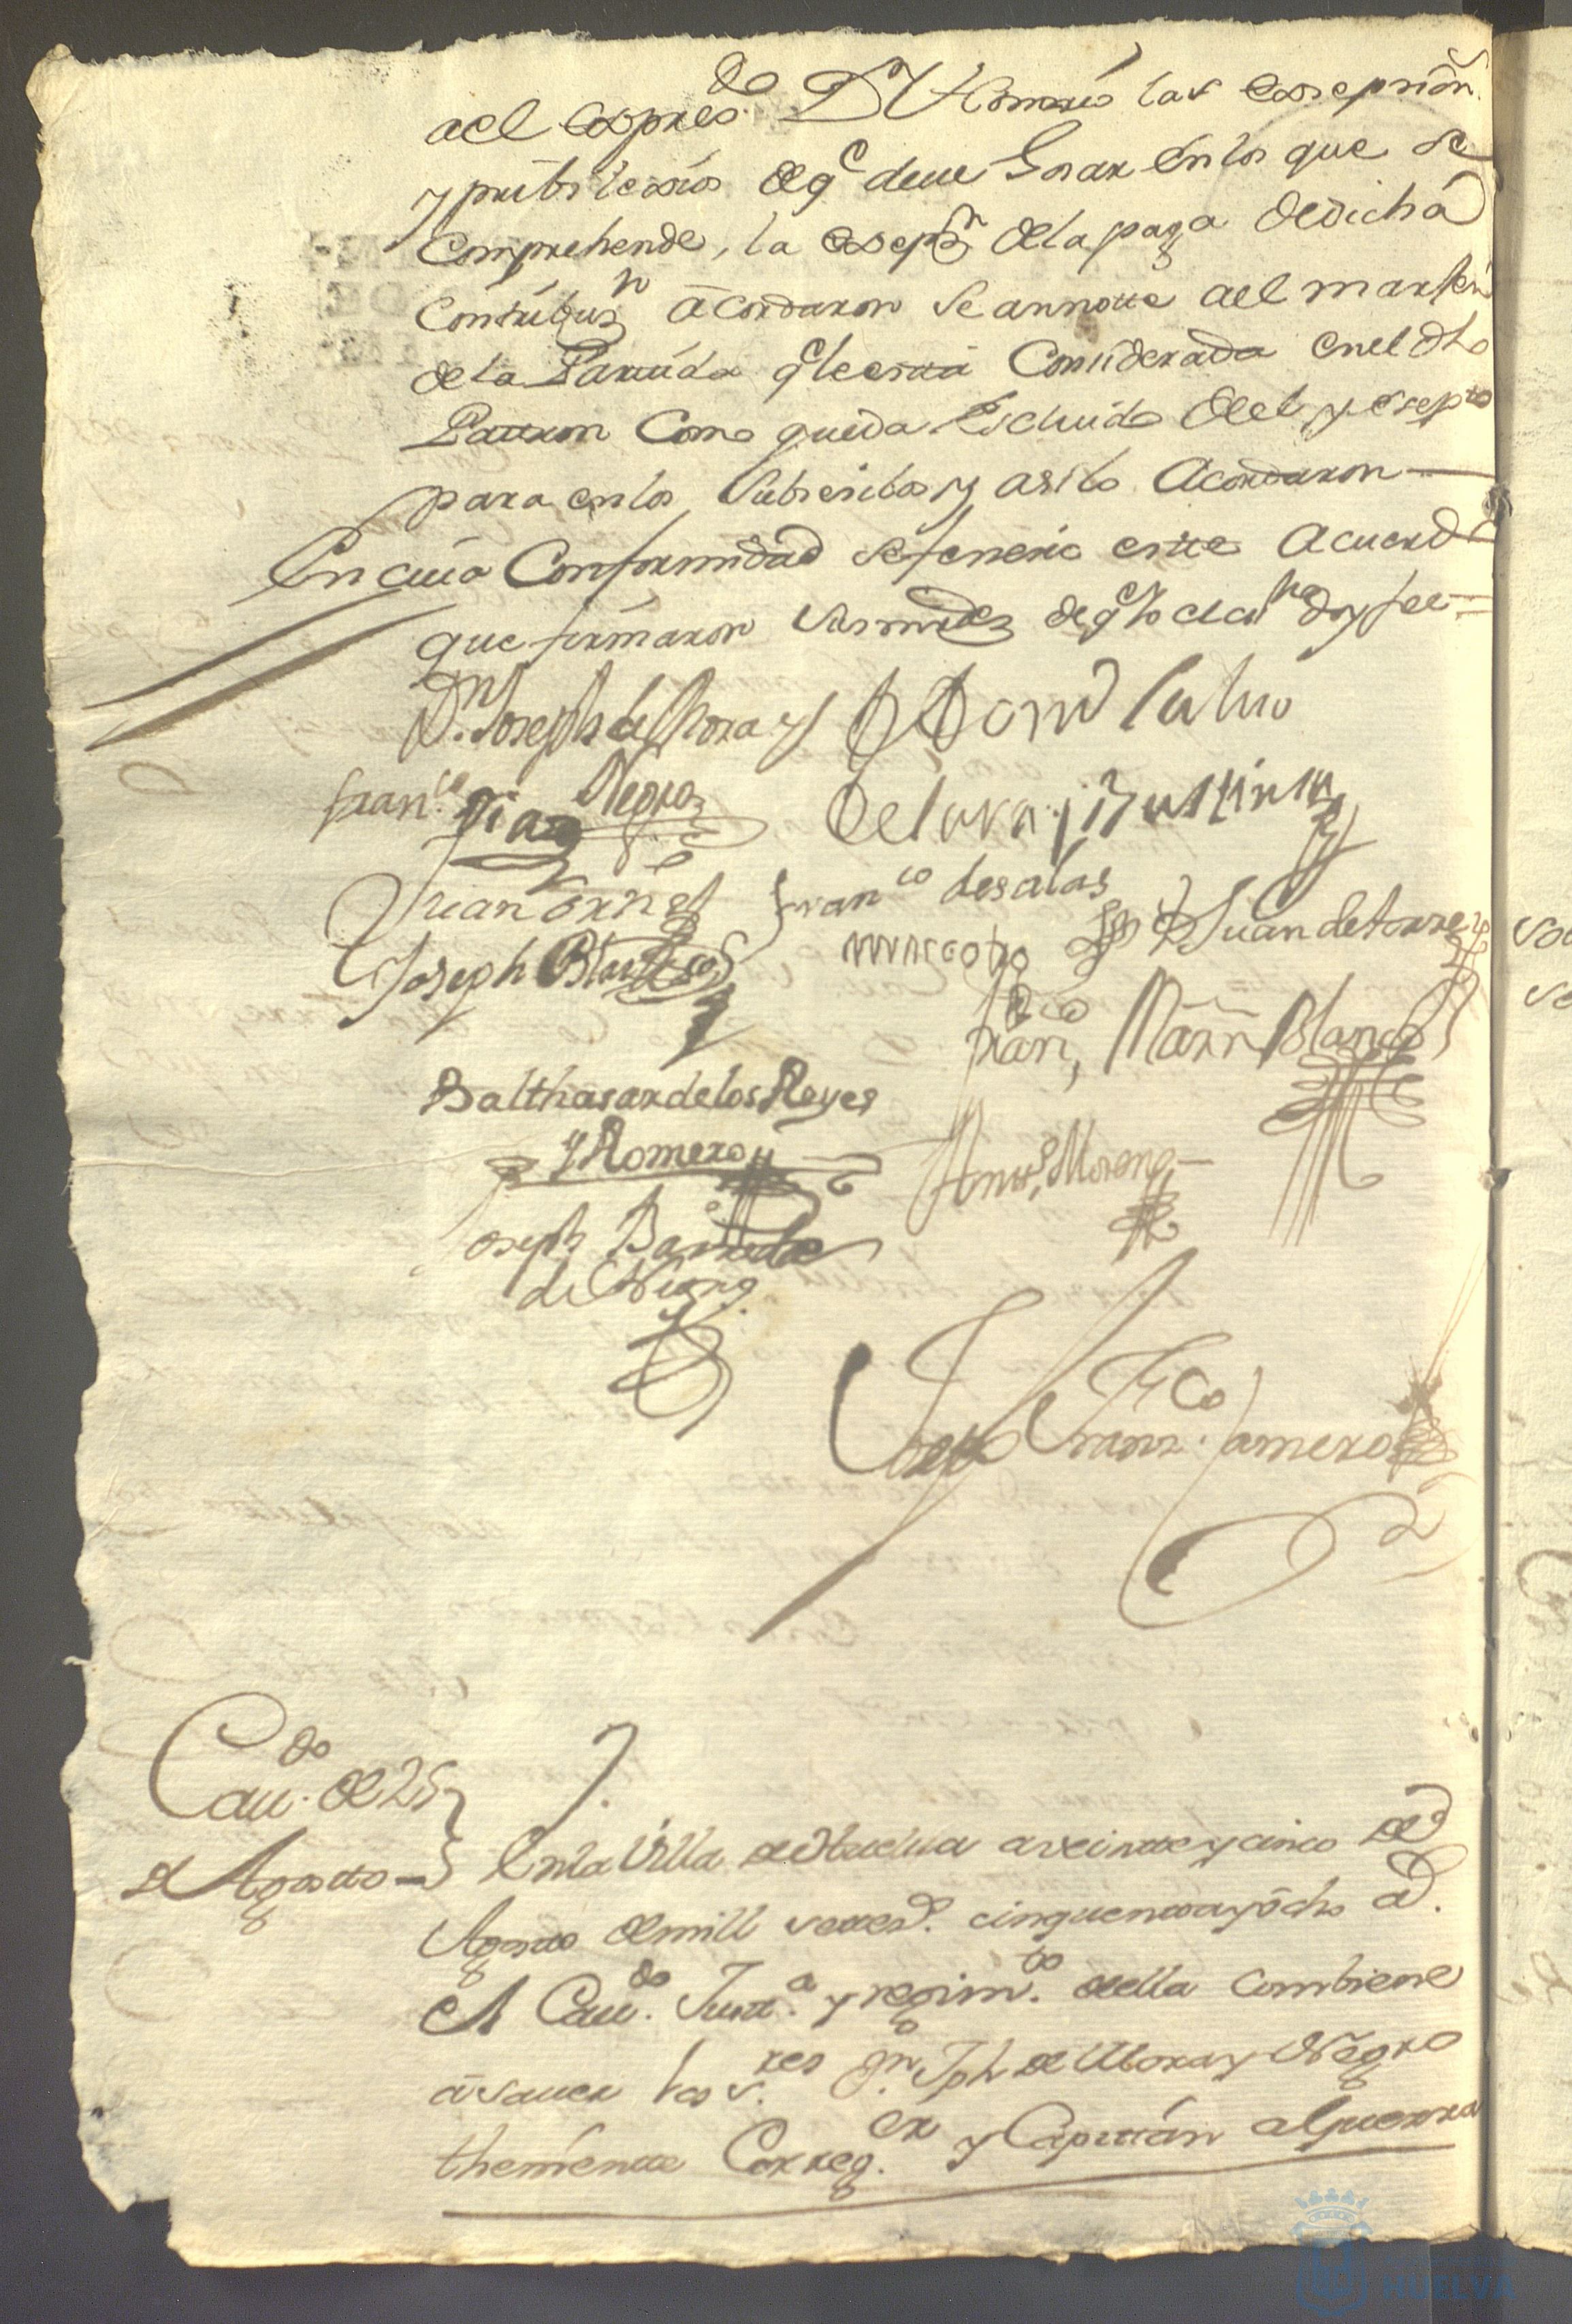 ael expres.do Dn Thomas las exsepsion.
y pribilexios de q.e deue Gosar en los que se
Comprehende, la exsepsn de la paga de dicha
Contribusn acordaron se annote ael marxen
de la Partida q.e le esta Considerada en el dho
Patron Como queda Escluido del y exsepto
para en los Subsesibos y asi lo Acordaron
En cuia Conformidad se feneсio este Acuerdo
que firmaron sus mrdes de q.e Yo el ess.no doy fee=
Dn. Joseph de Mora y
Negro
Dn
franco. Diaz
de Lara y Bustinsa
Juan
franco de salas
Joseph
Juan de torres
Franco, Marn Blanco
Balthasar de los Reyes
y Romero
Anto. Moreno
Joseph Barreda
de
Joseph Franzco. Jamero
Cau.do de 25
de Agosto
En la Villa de Huelua a veinte y cinco de
Agosto de mill setesd. cinquenta y ôcho a.d
el Cau.do Just.a y regim.to della Combiene
a sauer los s.res Dn. Jph de Mora y Negro
theniente Correg.or y Capitán a Guerra
HUELVA